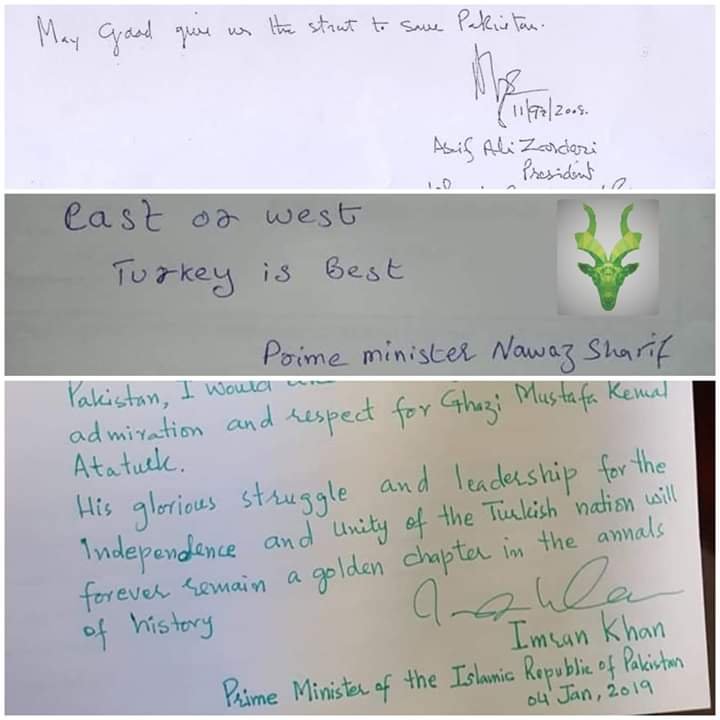 May Gaad give us the strut to save Pakistan.
Asif Ali Zardari
President
East or west
Turkey is Best
Prime minister Nawaz Sharif
Pakistan, I would
admiration and respect for Ghazi Mustafa Kemal
Ataturk.
His glorious struggle and leadership for the
Independence and Unity of the Turkish nation will
forever remain a golden chapter in the annals
of history
Imran Khan
Prime Minister of the Islamic Republic of Pakistan
04 Jan, 2019